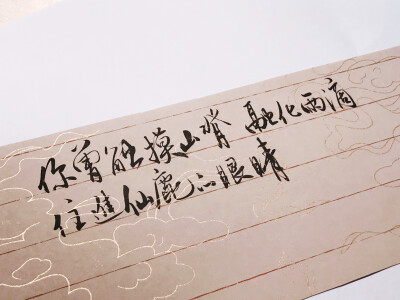 你曾触摸山脊 融化雨滴
住进仙鹿的眼睛